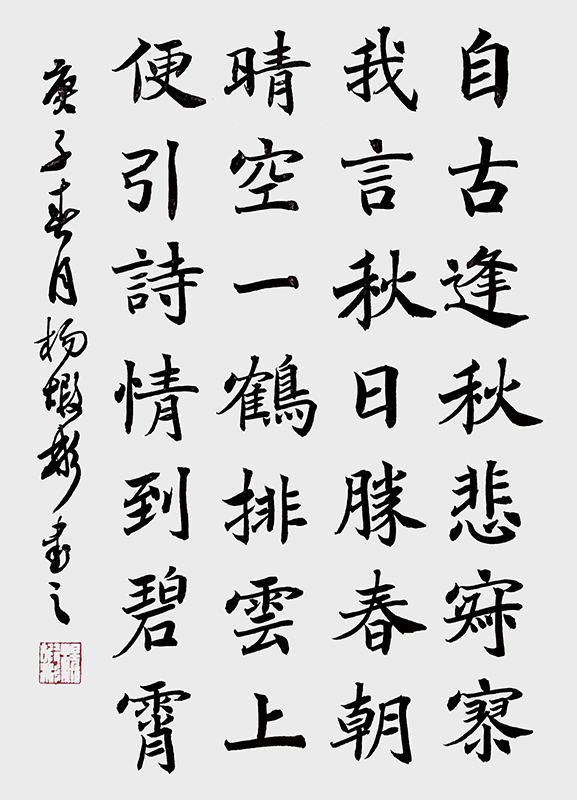 自古逢秋悲寂寥
我言秋日勝春朝
晴空一鶴排雲上
便引詩情到碧霄
庚子春月杨彬書之